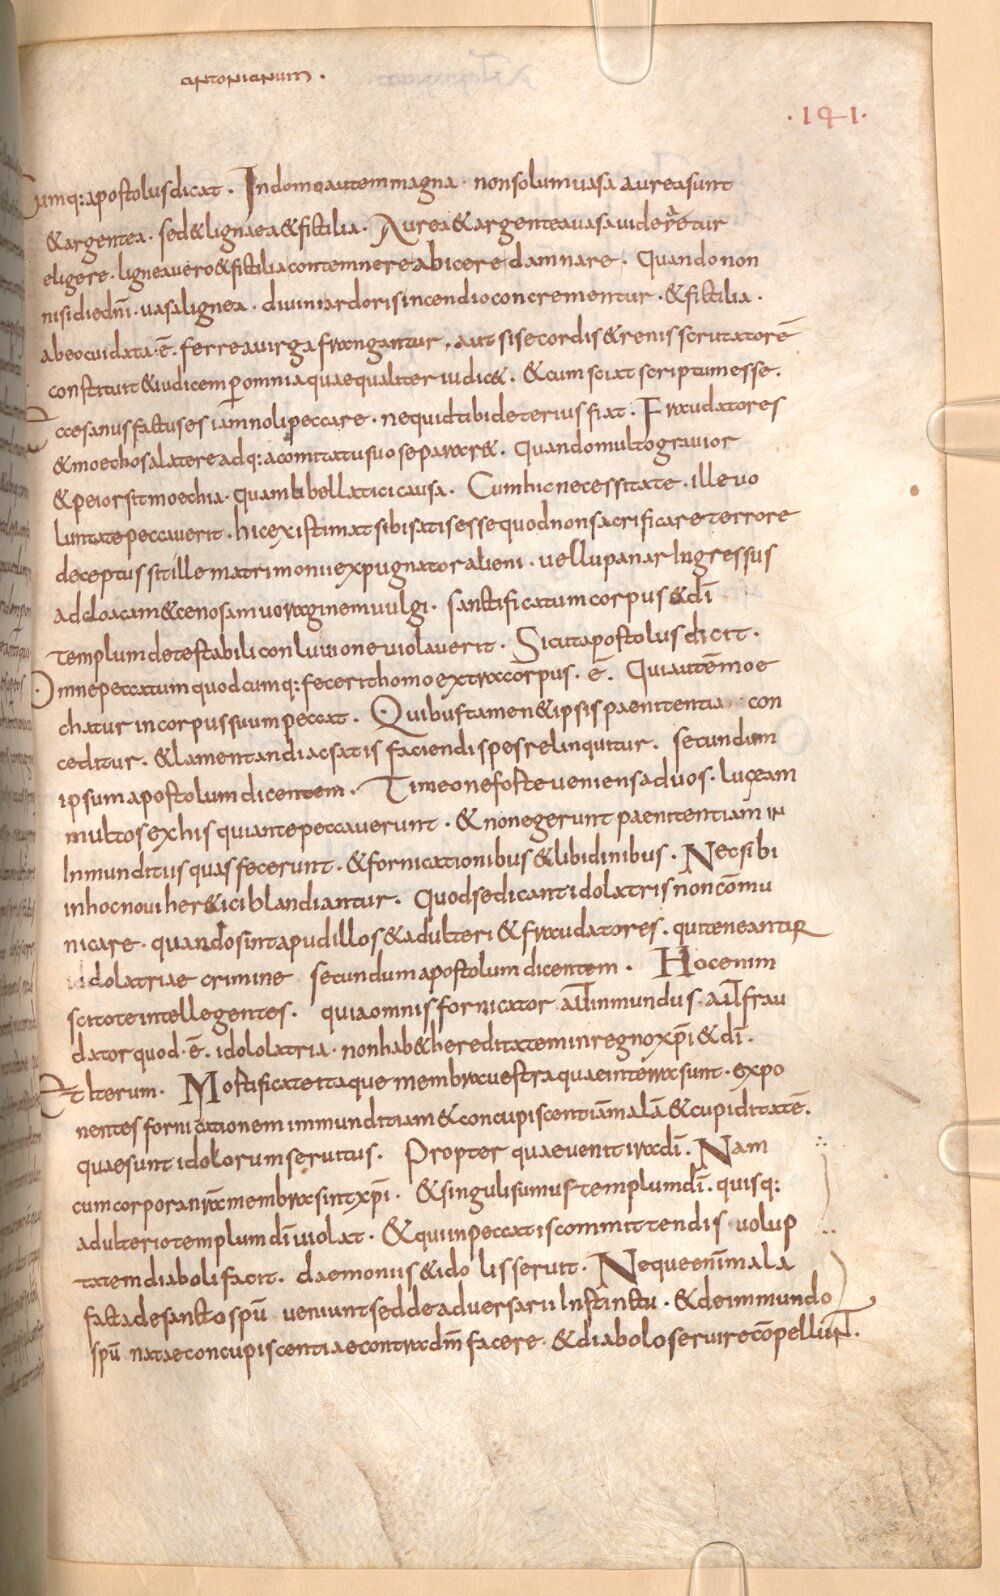 antonianum ·
· 141 ·
Cumq: apostolus dicat · In domo autem magna · non solum uasa aurea sunt
& argentea · sed & lignea & fictilia · Aurea & argentea uasa uideretur
eligere · lignea uero & fictilia contemnere abicere damnare · Quando non
nisi die dnī · uasa lignea · diuini ardoris incendio concrementur · & fictilia ·
ab eo cui data · ē · ferrea uirga frangantur · aut si se cordis & renis scrutatorē
constituit & iudicem ꝑ omnia quaequaliter iudic& · & cum sciat scriptum esse ·
Ecce sanus factus es iam noli peccare · ne quid tibi deterius fiat · Fraudatores
& moechos a latere adq: a comitatu suo separar& · Quando multo grauior
& peior sit moechia · quam libellatici causa · Cum hic necessitate · ille uo
luntate peccauerit · hic existimat sibi satis esse quod non sacrificare terrore
deceptus sit ille matrimonii expugnator alieni · uel lupanar Ingressus
ad cloacam & cenosam uoraginem uulgi · sanctificatum corpus & dī
templum detestabili conluuione uiolauerit · Sicut apostolus dicit ·
Omne peccatum quodcumq: fecerit homo extra corpus · ē · Qui autēm moe
chatur in corpus suum peccat · Quibus tamen & ipsis paenitentia con
ceditur · & lamentandi ac satis faciendi spes relinquitur · secundum
ipsum apostolum dicentem · Timeo ne forte ueniens ad uos · lugeam
multos ex his qui ante peccauerunt · & non egerunt paenitentiam in
Inmunditiis quas fecerunt · & fornicationibus & libidinibus · Nec sibi
in hoc noui her&ici blandiantur · Quod se dicant idolatris non cōmu
nicare · quando sint apud illos & adulteri & fraudatores · qui teneantur
idolatriae crimine secundum apostolum dicentem · Hoc enim
scitote intellegentes · quia omnis fornicator aut inmundus aut frau
dator quod · ē · idololatria · non hab& hereditatem in regno xp̄i & dī ·
Et Iterum · Mortificate itaque membra uestra quae in terra sunt · expo
nentes fornicationem immunditiam & concupiscentiam malā & cupiditatē ·
quae sunt idolorum seruitus · Propter quae uenit ira dī · Nam
cum corpora nr̄a membra sint xp̄i · & singuli sumus templum dī · quisq:
adulterio templum dī uiolat · & qui in peccatis committendis uolup
tatem diaboli facit · daemoniis & idolis seruit · Neque enī mala
facta de sancto spū ueniunt sed de aduersarii Instinctu · & de immundo
spū natae concupiscentiae contra dm̄ facere · & diabolo seruire cōpellunt ·